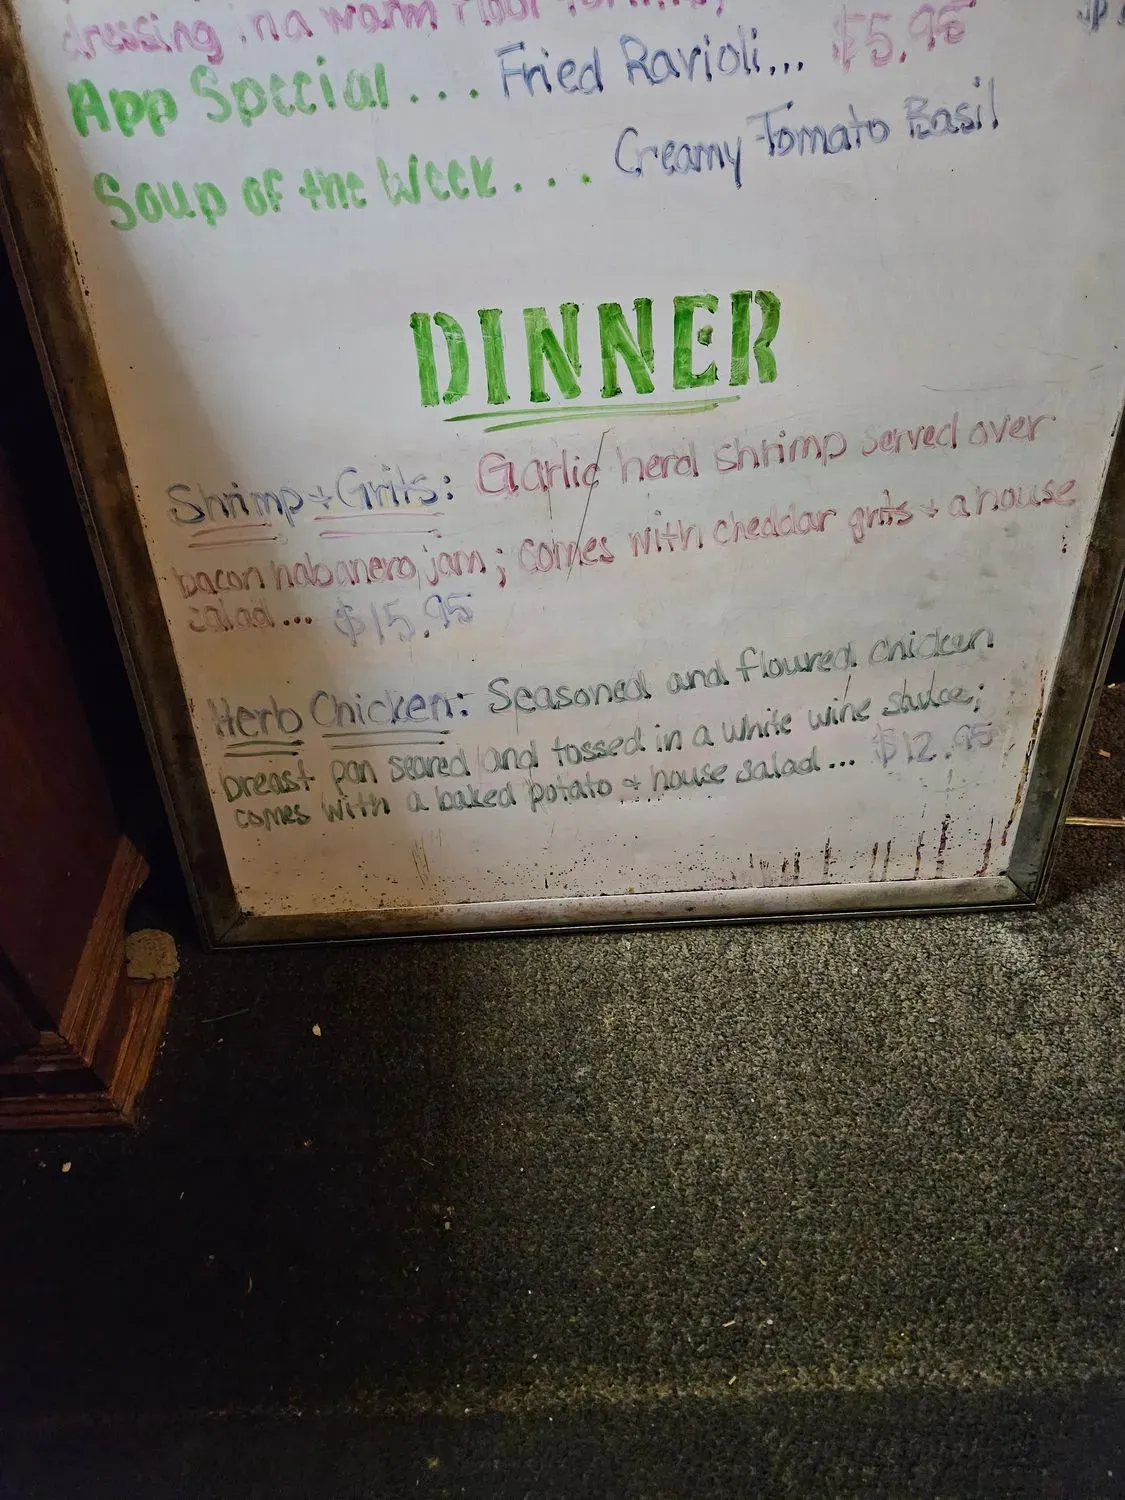 dressing in a warm flour tortilla,
App Special... Fried Ravioli... $5.95
Soup of the Week.... Creamy Tomato Basil
DINNER
Shrimp + Grits: Garlic herd shrimp served over
bacon habanero jam; comes with cheddar grits + a house
salad... $15.95
Herb Chicken: Seasoned and floured chicken
breast pan seared and tossed in a white wine
comes with a baked potato + house salad... $12.95